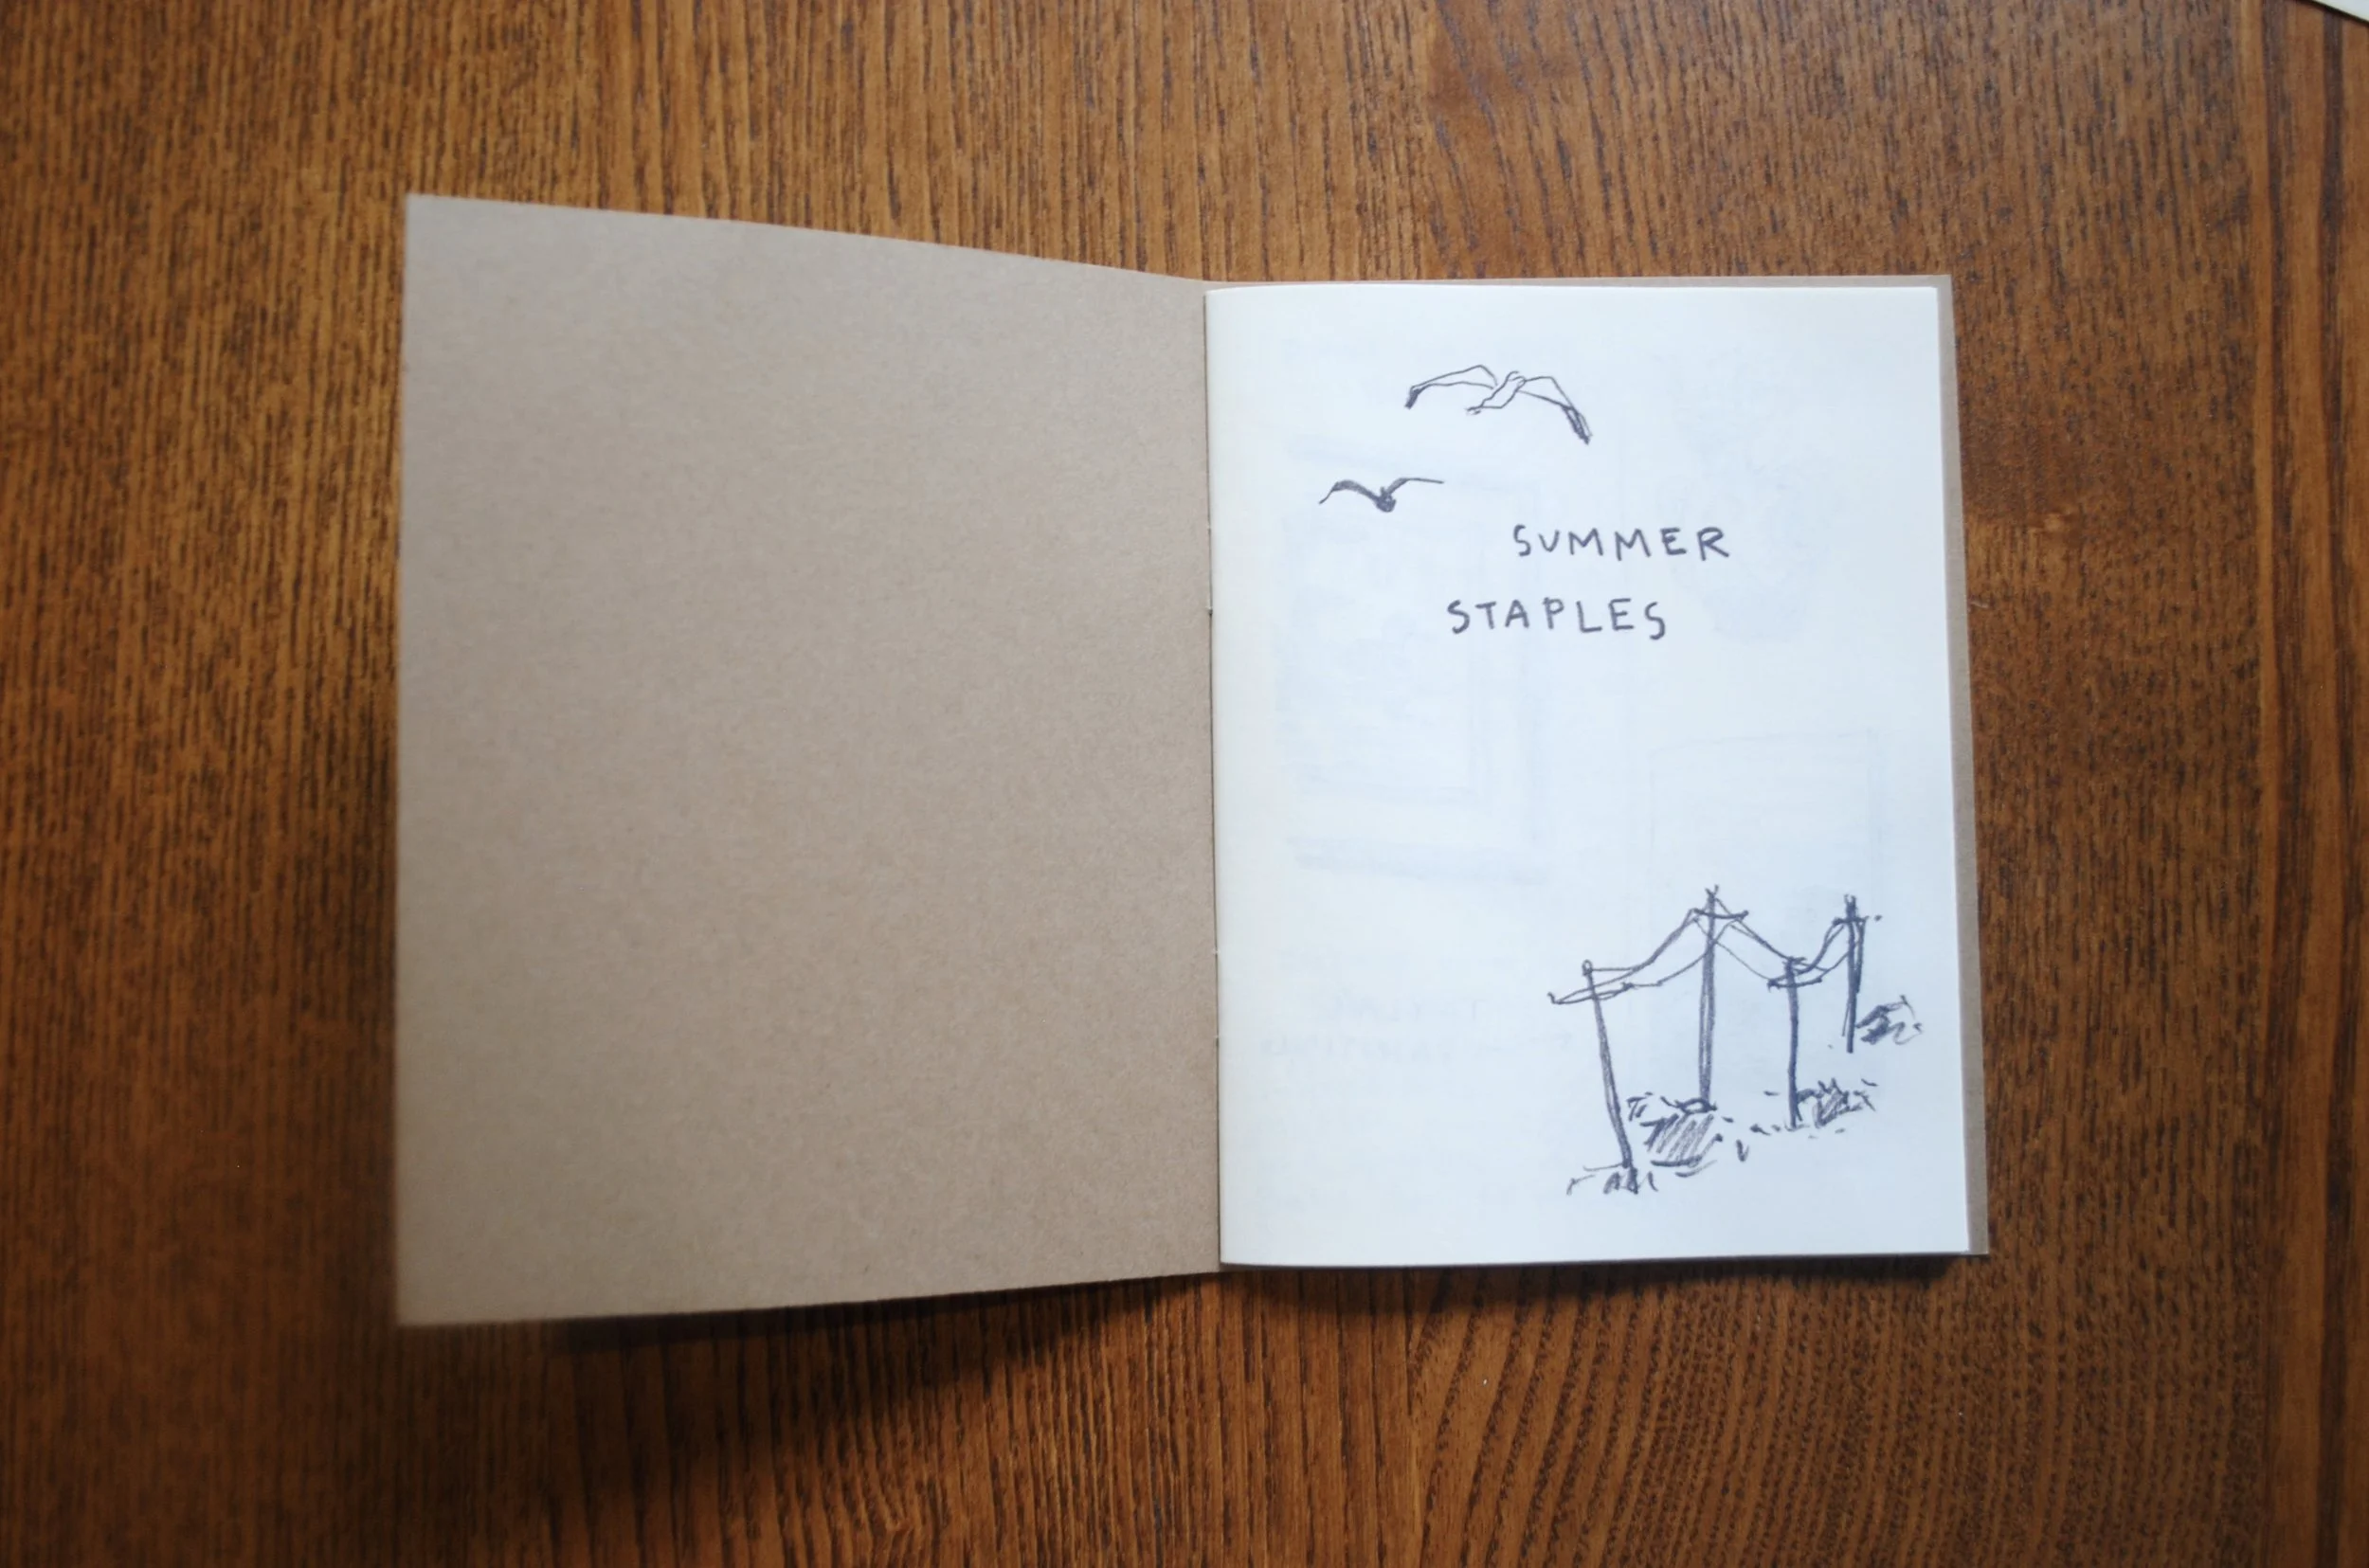 SUMMER
STAPLES